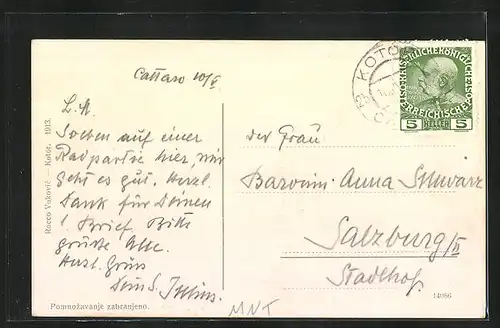 Cattaro 10/V
L. A.
Soeben auf einer
Radpartie hier, mir
geht es gut. Herzl.
Dank für Deinen
l. Brief. Bitte
grüße Alle.
Herzl. Gruss
Dein S. Julius.
Rocco Vuković — Kotor. 1913.
Pomnožavanje zabranjeno.
KOTOR
5 HELLER 5
der Frau
Baronin Anna Schwarz
Salzburg/II
Stadlhof
14086
MNT